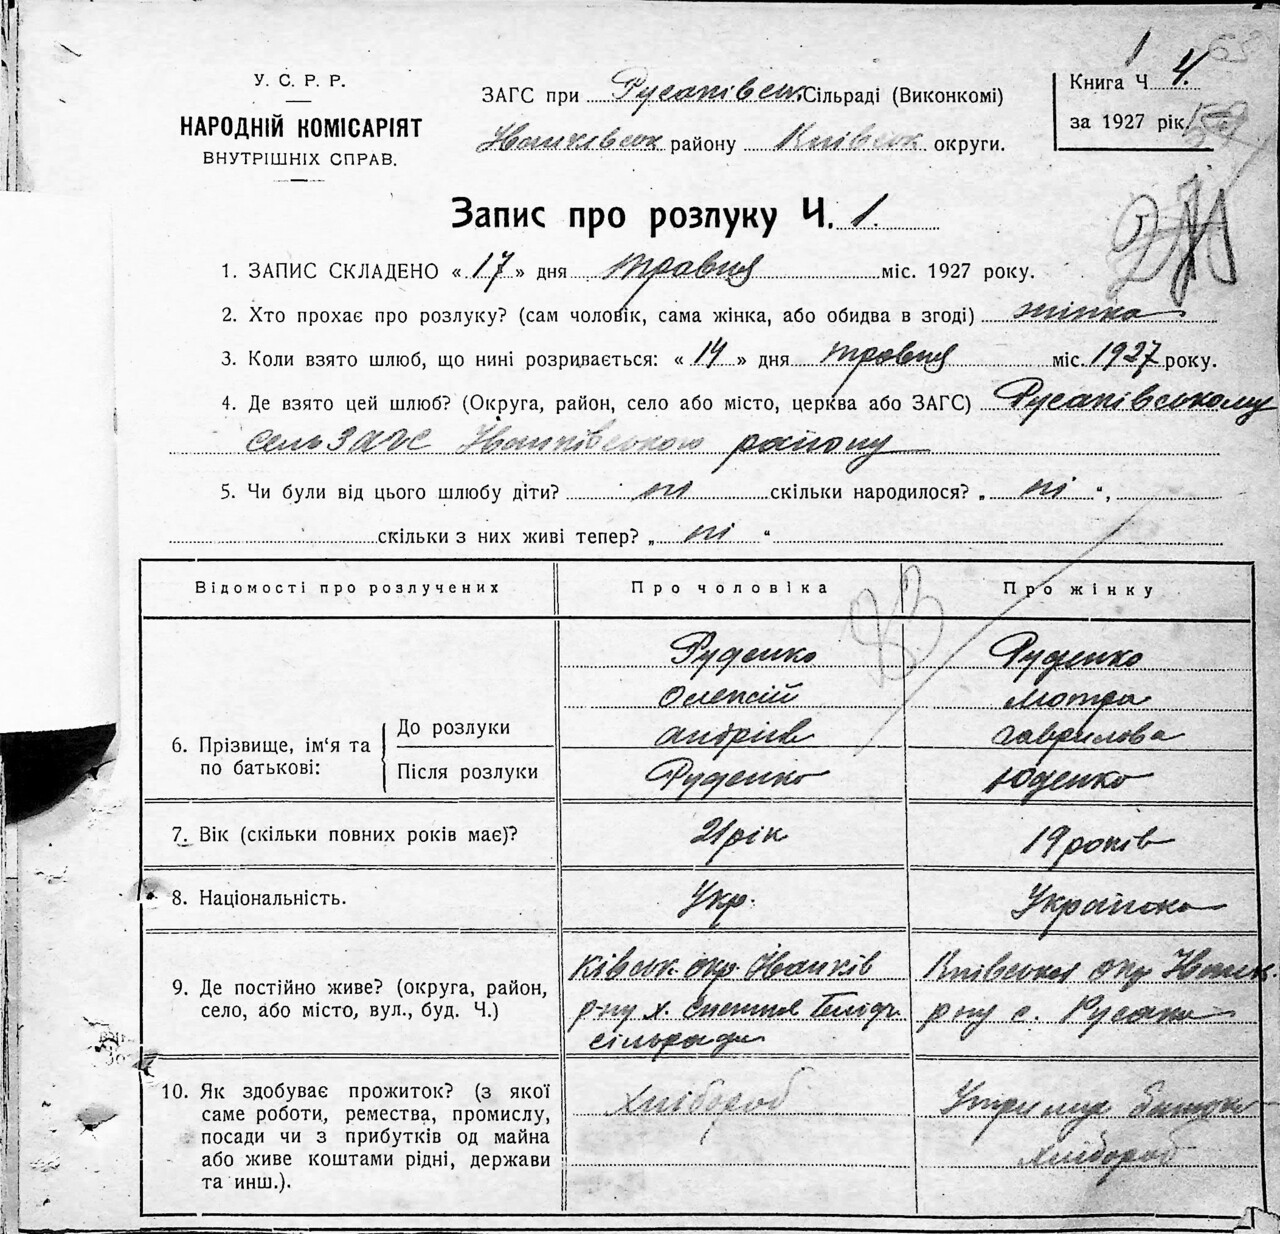 У. С. Р. Р.
НАРОДНІЙ КОМІСАРІЯТ
ВНУТРІШНІХ СПРАВ.
ЗАГС при Русаківськ Сільраді (Виконкомі)
Іванківськ району Київськ округи.
Книга Ч 4.
за 1927 рік.
Запис про розлуку Ч. 1.
1. ЗАПИС СКЛАДЕНО « 17 » дня травня міс. 1927 року.
2. Хто прохає про розлуку? (сам чоловік, сама жінка, або обидва в згоді) жінка
3. Коли взято шлюб, що нині розривається: « 14 » дня травня міс. 1927 року.
4. Де взято цей шлюб? (Округа, район, село або місто, церква або ЗАГС) Русаківському
сельЗАГС Іванківського району
5. Чи були від цього шлюбу діти? ні скільки народилося? „ ні “,
скільки з них живі тепер? „ ні “
Відомості про розлучених Про чоловіка Про жінку
6. Прізвище, ім‘я та по батькові:
До розлуки
Після розлуки
Руденко Руденко
Олексій Мотря
Андріїв Гаврилова
Руденко Юденко
7. Вік (скільки повних років має)? 21 рік 19 років
8. Національність. Укр. Українка
9. Де постійно живе? (округа, район,
село, або місто, вул., буд. Ч.)
Київськ. окр. Іванків
р-ну х. сільради
Київської окр Іванк.
р-ну с. Русаки
10. Як здобуває прожиток? (з якої
саме роботи, ремества, промислу,
посади чи з прибутків од майна
або живе коштами рідні, держави
та инш.).
Хлібороб
Утримує батько
хлібороб